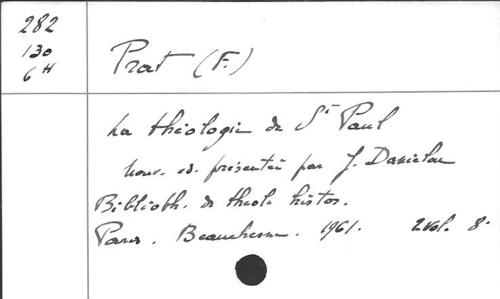 282
130
6 H
Prat (F.)
La théologie de St Paul
Nouv. ed. présentée par J. Danielou
Biblioth. de theol. histor.
Paris. Beauchesne. 1961. 2 vol. 8.